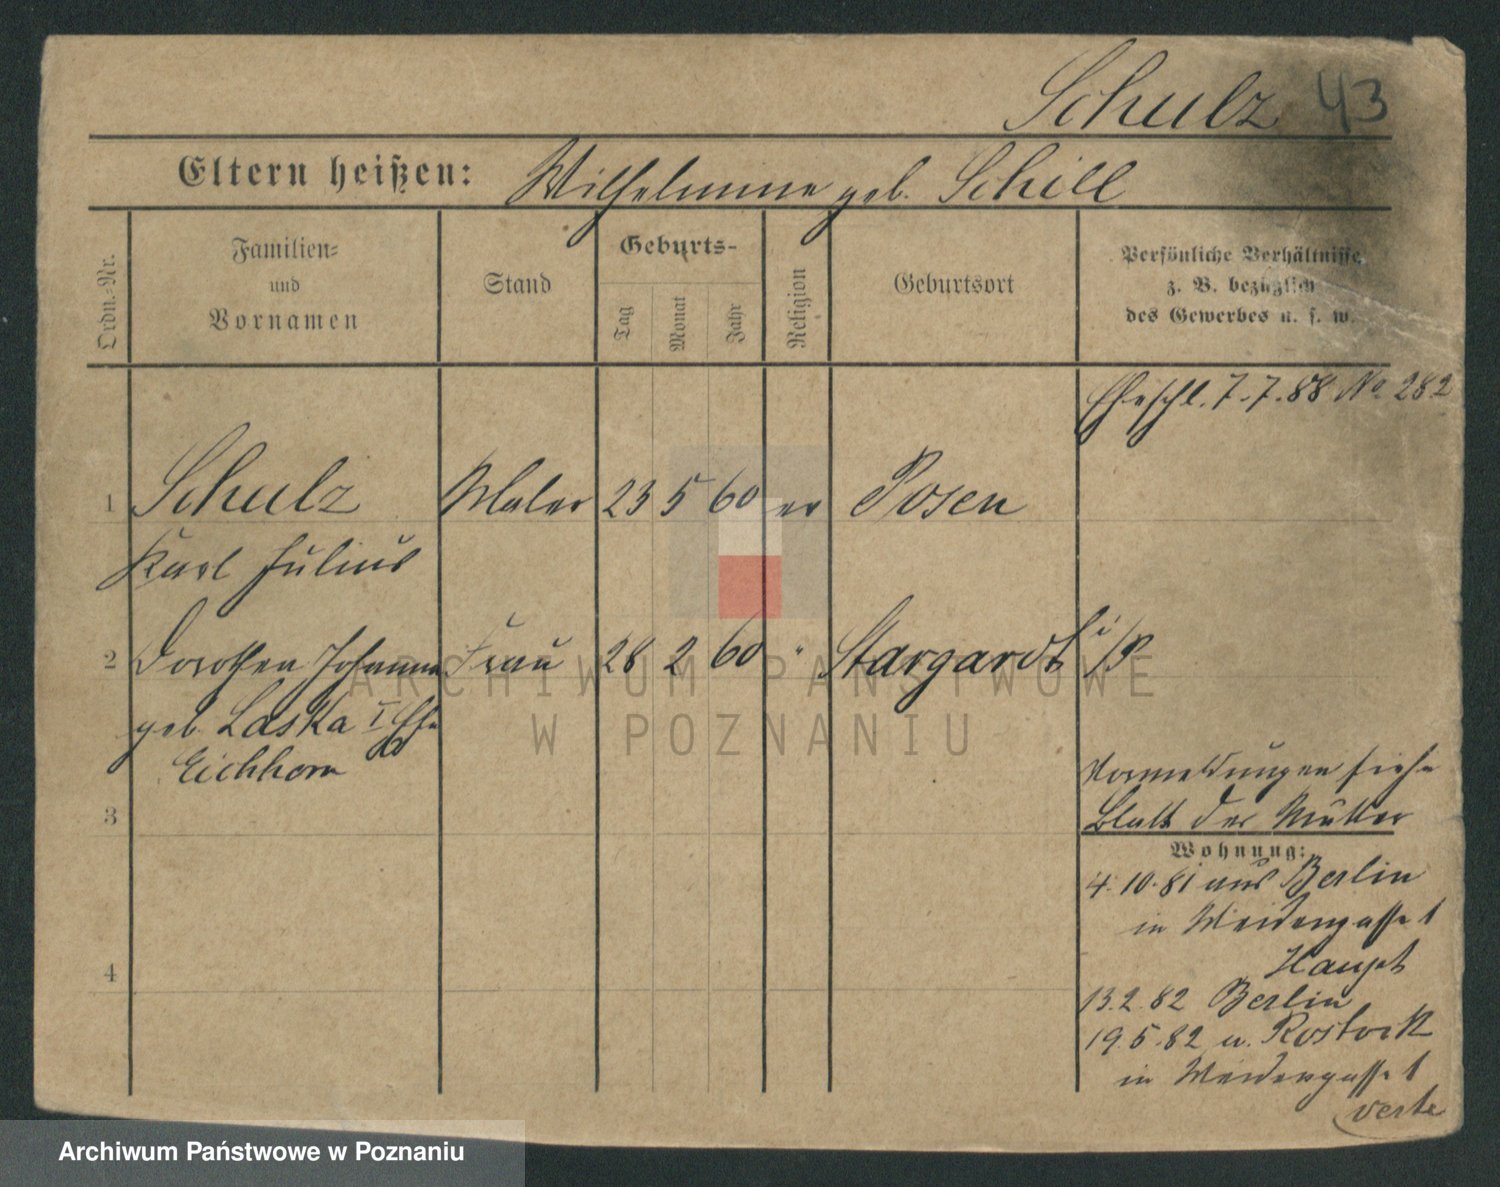 Schulz 43
Eltern heißen: Wilhelmine geb. Schill
Ordn.-Nr.
Familien-
und
Vornamen
Stand
Geburts-
Tag
Monat
Jahr
Religion
Geburtsort
Persönliche Verhältnisse
z. B. bezüglich
des Gewerbes u. s. w.
Eheschl. 7.7.88 No 282
1 Schulz Maler 23 5 60 ev Posen
Karl Julius
2 Dorothea Johanna Frau 28 2 60 " Stargardt i/P
geb. Laska I Ehe
Eichhorn
3
4
Vormeldungen siehe
Blatt der Mutter
Wohnung:
4.10.81 aus Berlin
in Weidengasse 1
Haupt
13.2.82 Berlin
19.5.82 v. Rostock
in Weidengasse 1
verte
ARCHIWUM PAŃSTWOWE
W POZNANIU
Archiwum Państwowe w Poznaniu